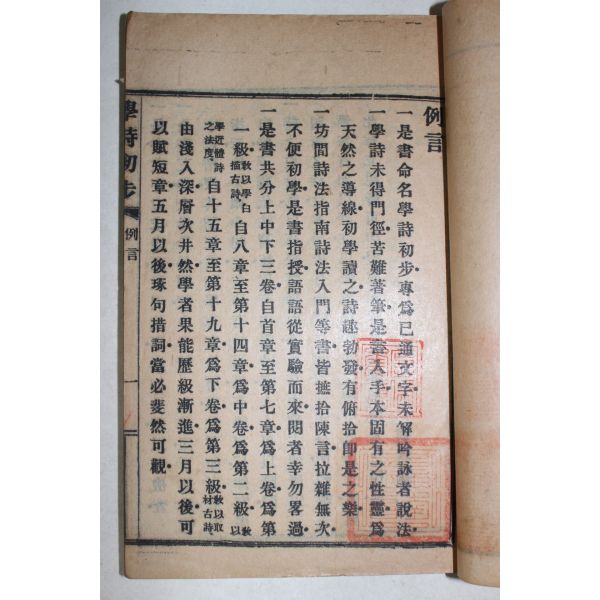 例言
一是書命名學詩初步專爲已通文字未解吟詠者說法
一學詩未得門徑苦難著筆是書入手本固有之性靈爲
天然之導線初學讀之詩趣勃發有俯拾即是之樂
一坊間詩法指南詩法入門等書皆摭拾陳言拉雜無次
不便初學是書指授語語從實驗而來閱者幸勿畧過
一是書共分上中下三卷自首章至第七章爲上卷爲第
一級教以學白描古詩自八章至第十四章爲中卷爲第二級教以
學近體詩之法度自十五章至第十九章爲下卷爲第三級教以取材古詩
由淺入深層次井然學者果能歷級漸進三月以後可
以賦短章五月以後琢句措詞當必斐然可觀
學詩初步
例言
一